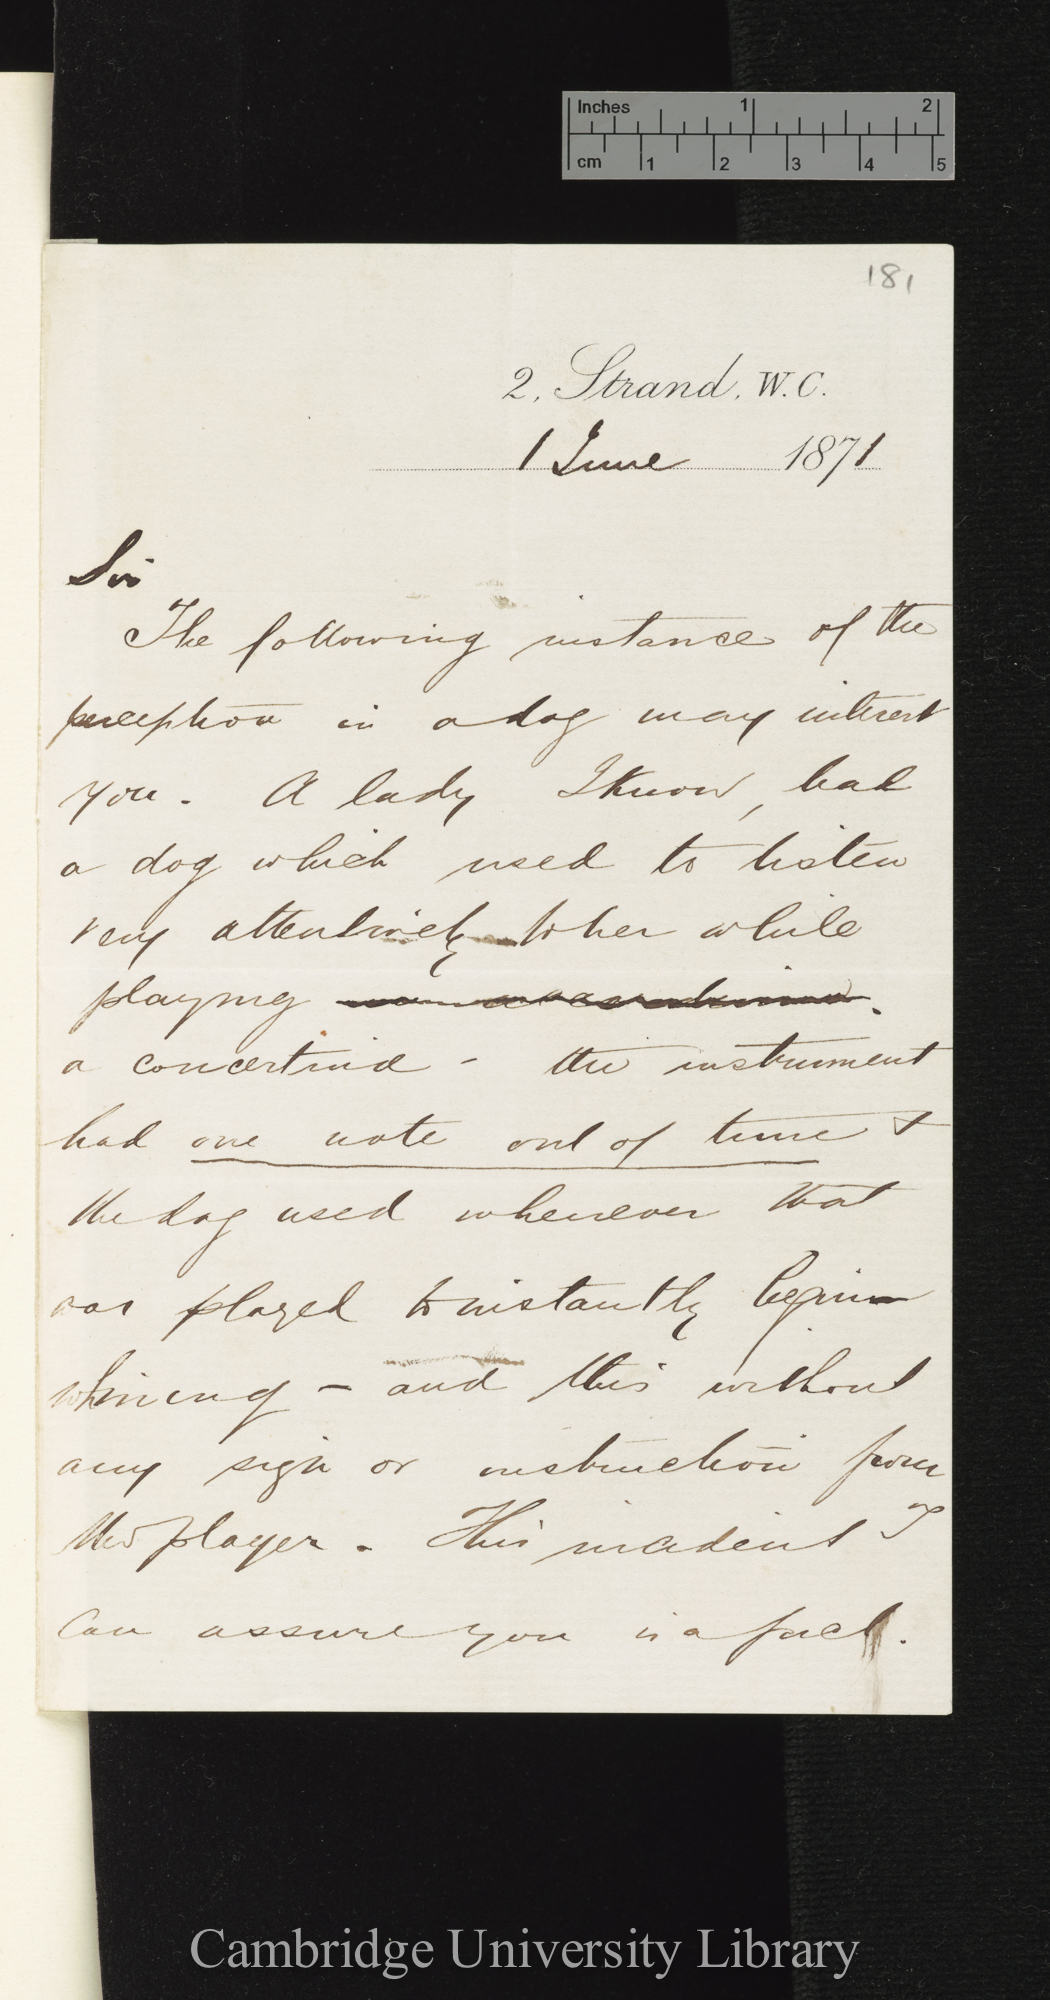 Inches 1 2
cm 1 2 3 4 5
181
2, Strand, W.C.
1 June 1871
Sir
The following instance of the
perception in a dog may interest
you. A lady I know, had
a dog which used to listen
very attentively to her while
playing
a concertina - the instrument
had one note out of tune &
the dog used whenever that
was played to instantly begin
whining - and this without
any sign or instruction from
the player. This incident I
can assure you is a fact.
Cambridge University Library